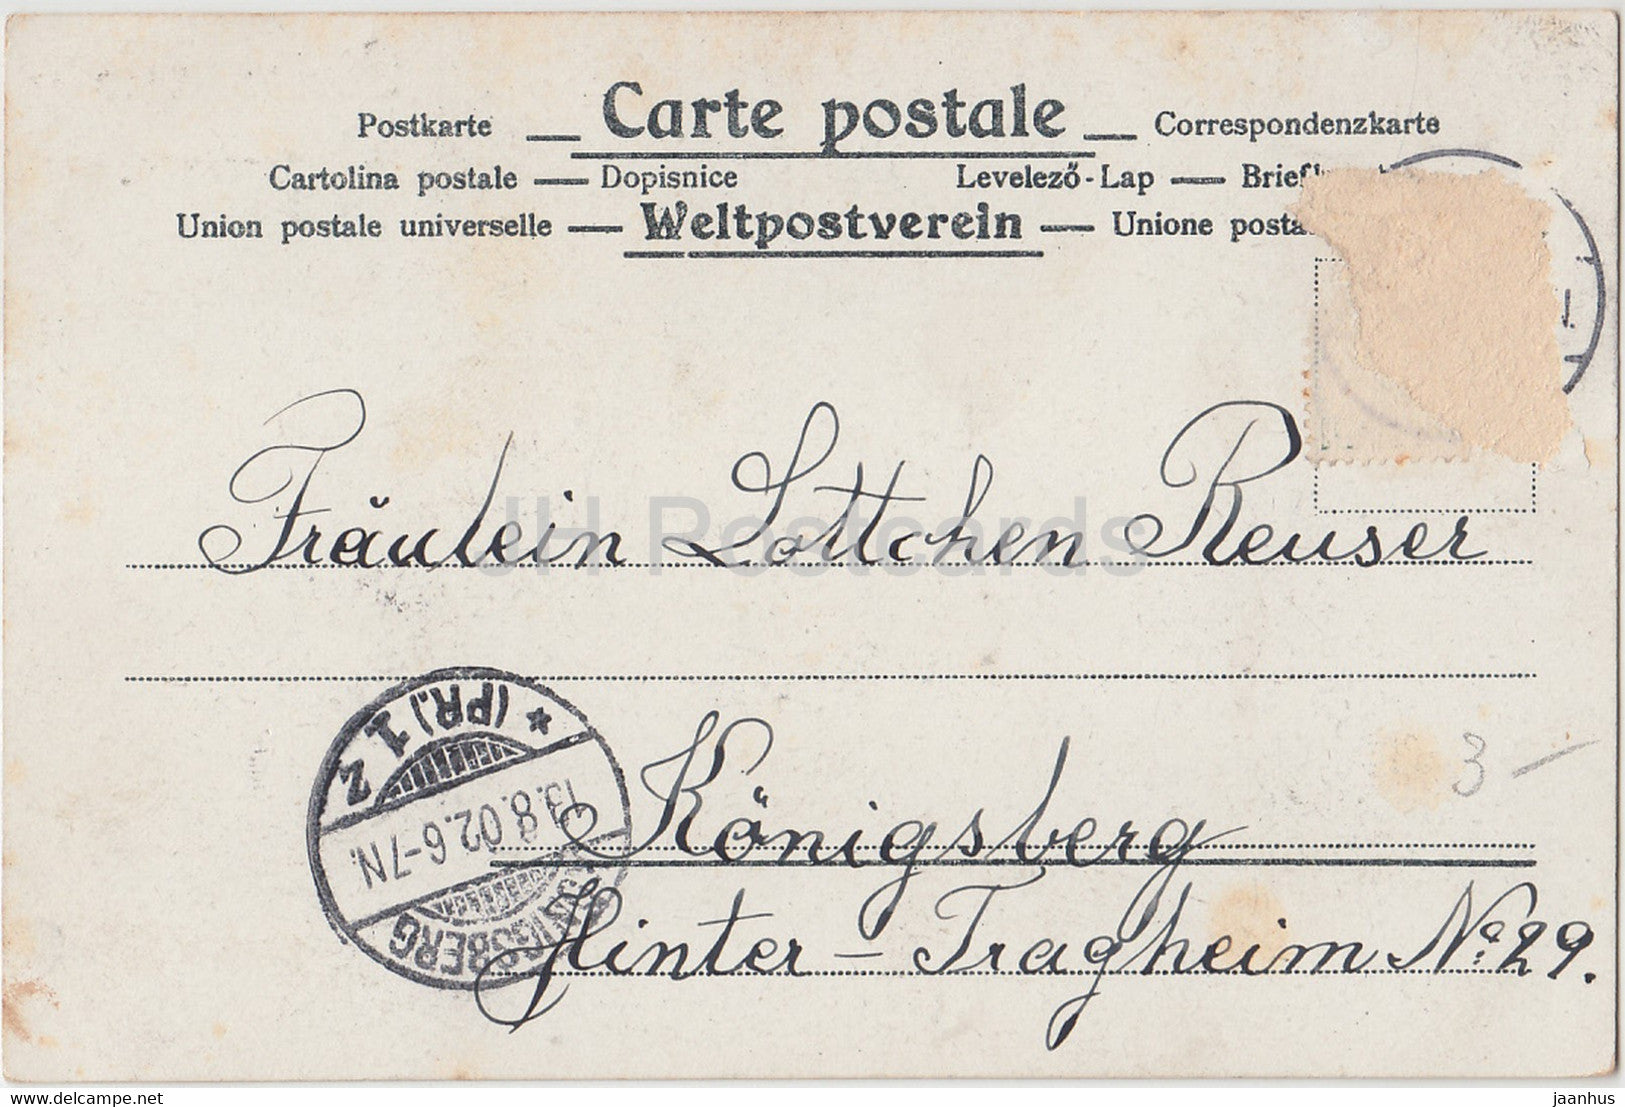 Postkarte — Carte postale — Correspondenzkarte
Cartolina postale — Dopisnice Levelező-Lap —
Union postale universelle — Weltpostverein — Unione
Fräulein Lottchen Reuser
JH Postcards
* (PR.) 1 Z
13.8.02.6-7N.
KÖNIGSBERG
3 —
Königsberg
Hinter-Tragheim No. 29.
www.delcampe.net
jaanhus